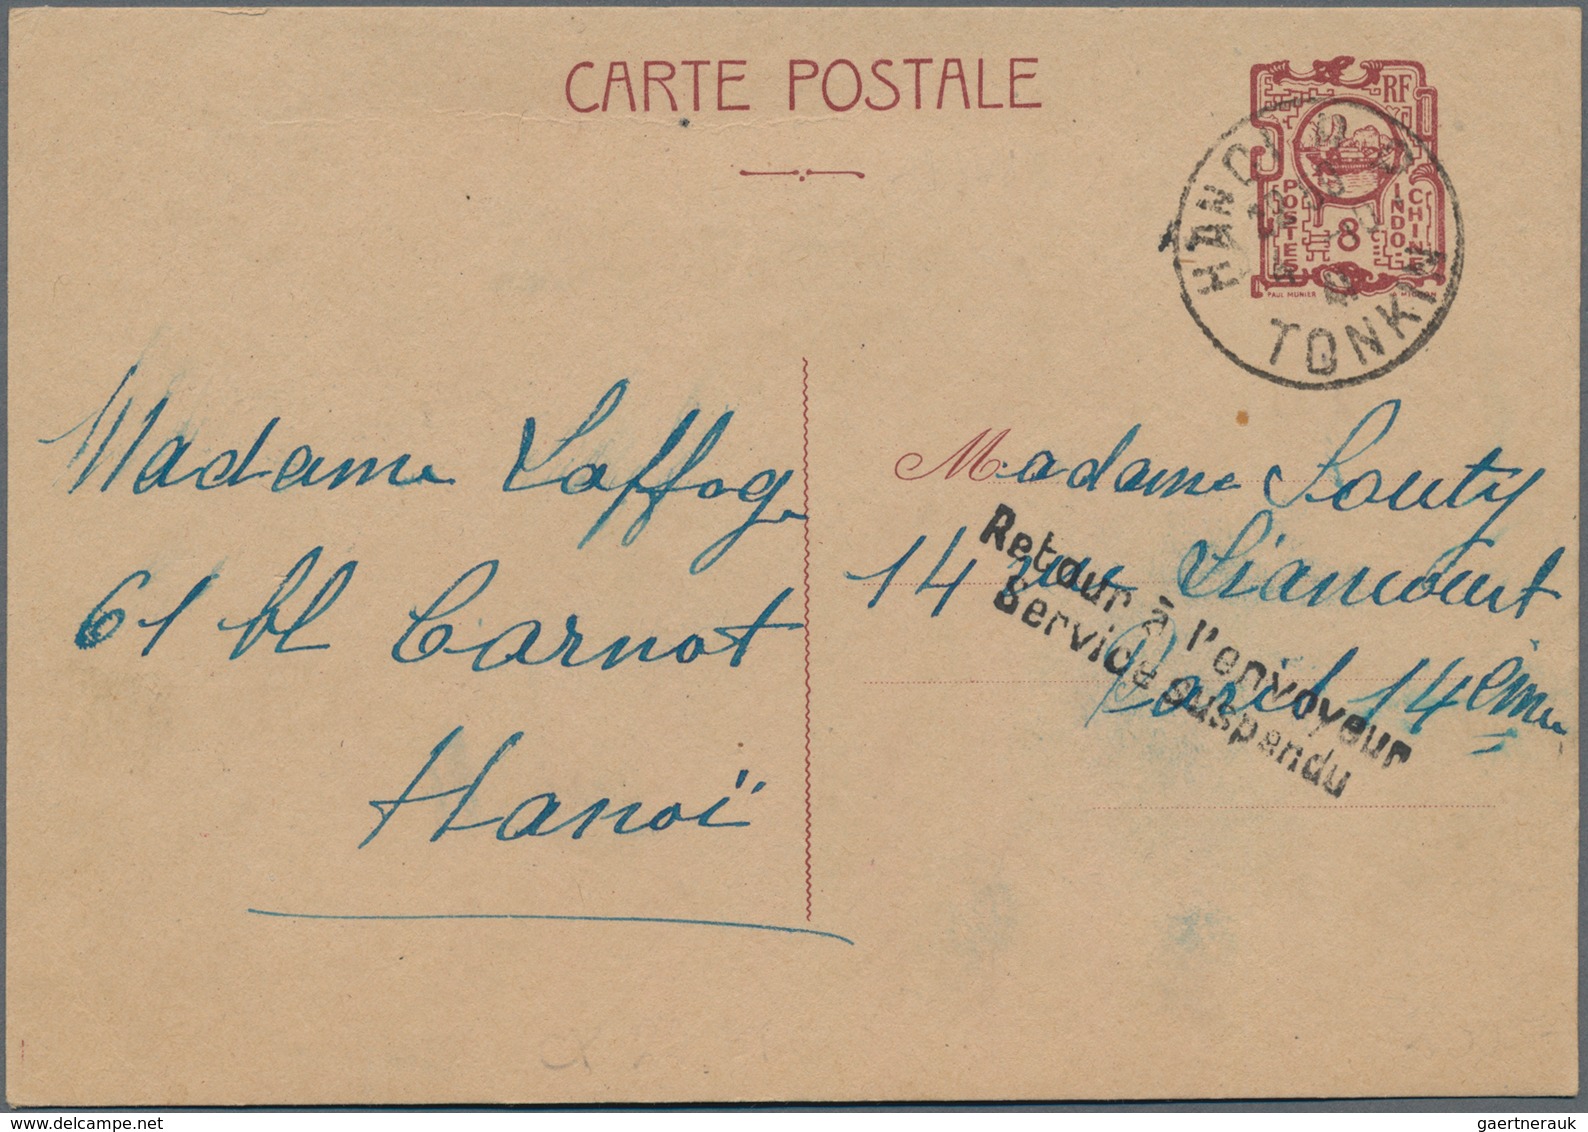 CARTE POSTALE
RF
POSTES
INDO
CHINE
8
PAUL MUNIER
HANOI R.P.
TONKIN
Madame Laffoge
61 bl Carnot
Hanoï
Madame Souty
14 rue Liancourt
Paris 14ème
Retour à l'envoyeur
Service suspendu
gaertnerauk